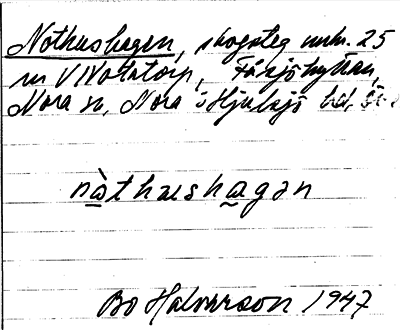 Nothushagen, skogsteg num. 25
nr V Nottatorp, Fåsjöhyttan,
Nora sn, Nora o Hjulsjö hd, Ör.
nàthushagan
Bo Halvarson 1947